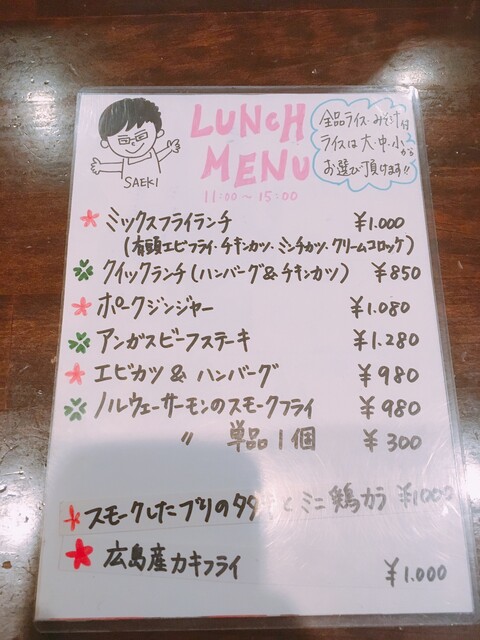 SAEKI
LUNCH
MENU
11:00～15:00
全品ライス・みそ汁付
ライスは大・中・小から
お選び頂けます!!
ミックスフライランチ ¥1.000
(有頭エビフライ・チキンカツ・ミンチカツ・クリームコロッケ)
クイックランチ(ハンバーグ&チキンカツ) ¥850
ポークジンジャー ¥1.080
アンガスビーフステーキ ¥1.280
エビカツ & ハンバーグ ¥980
ノルウェーサーモンのスモークフライ ¥980
〃 単品1個 ¥300
スモークしたブリのタタキとミニ鶏カラ ¥1000
広島産カキフライ ¥1.000